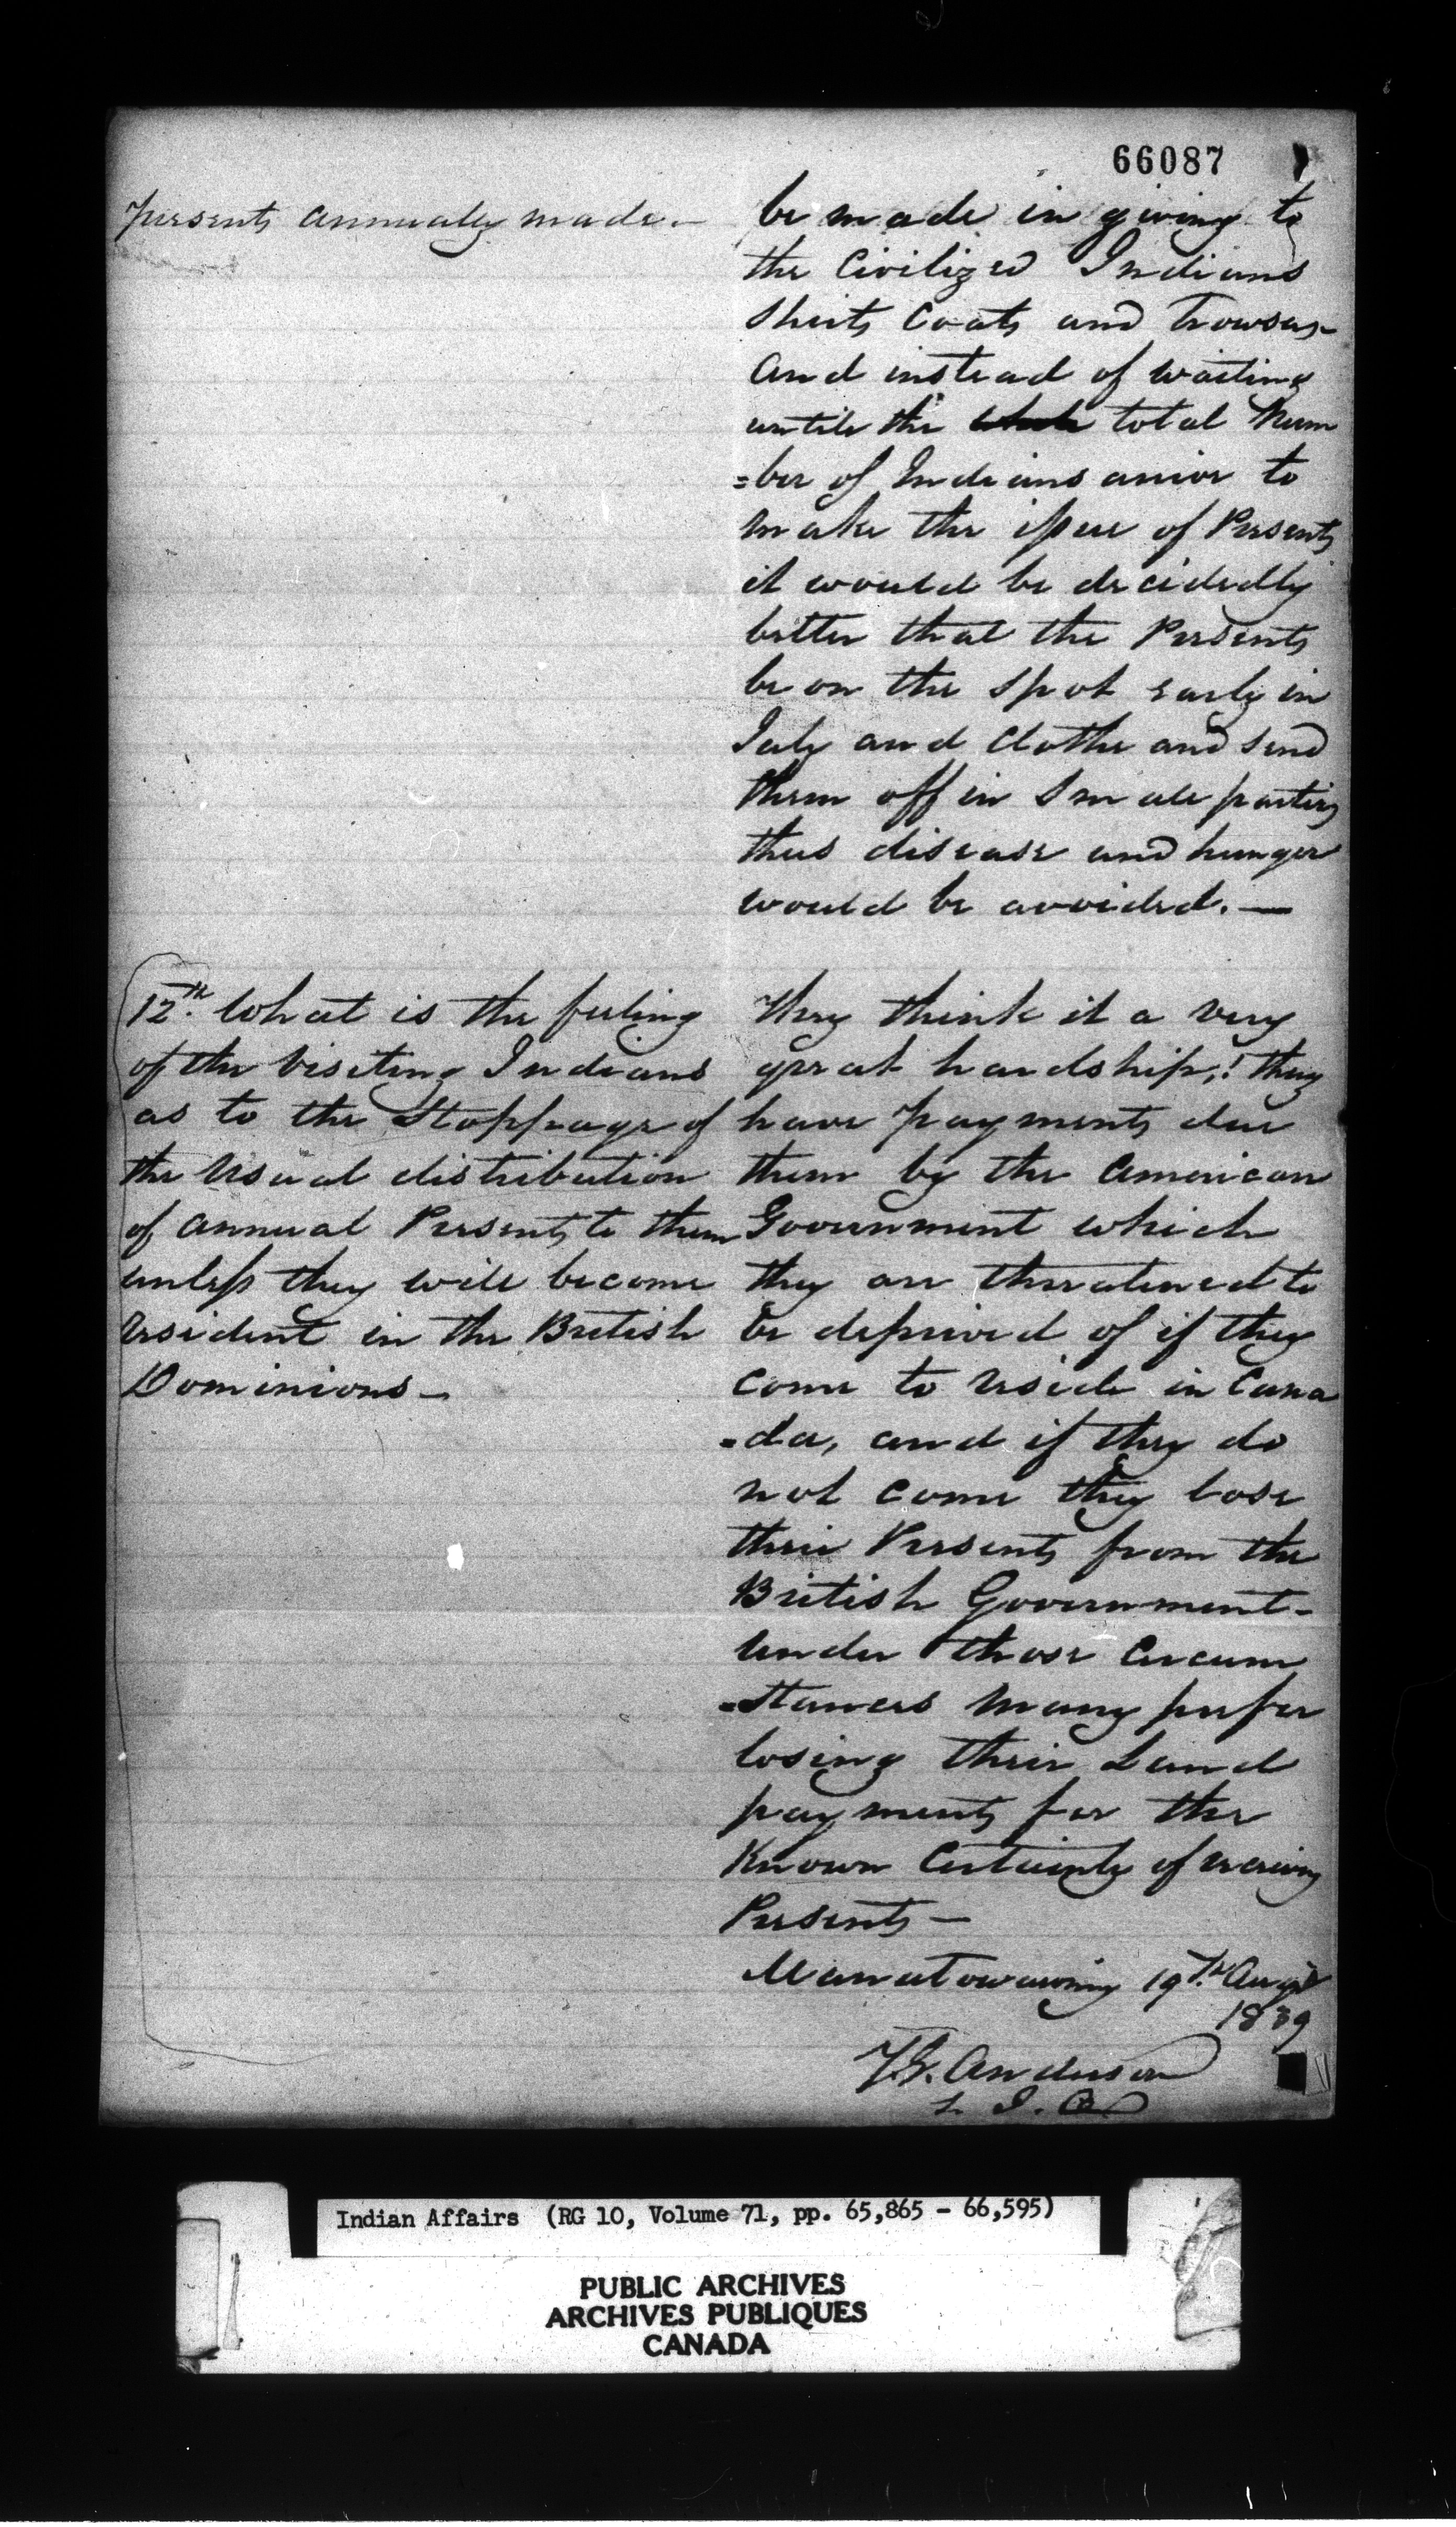 66087
presents annually made.—
be made in giving to
the Civilized Indians
Shirts Coats and Trowsers
and instead of waiting
until the whole total Num
=ber of Indians arrive to
make the issue of Presents
it would be decidedly
better that the Presents
be on the spot early in
July and Clothe and send
them off in small parties
thus disease and hunger
would be avoided.—
12th. What is the feeling
of the Visiting Indians
as to the Stoppage of
the Usual distribution
of annual Presents to them
unless they will become
resident in the British
Dominions—
They think it a very
great hardship,! they
have payments due
them by the American
Government which
they are threatened to
be deprived of if they
come to reside in Cana
=da, and if they do
not come they lose
their Presents from the
British Government-
Under those Circum
=stances Many prefer
losing their Land
payments for the
Known Certainty of receiving
Presents—
Manatowawning 19th. Augt
1839
T.G. Anderson
S. I. A
Indian Affairs (RG 10, Volume 71, pp. 65,865 - 66,595)
PUBLIC ARCHIVES
ARCHIVES PUBLIQUES
CANADA